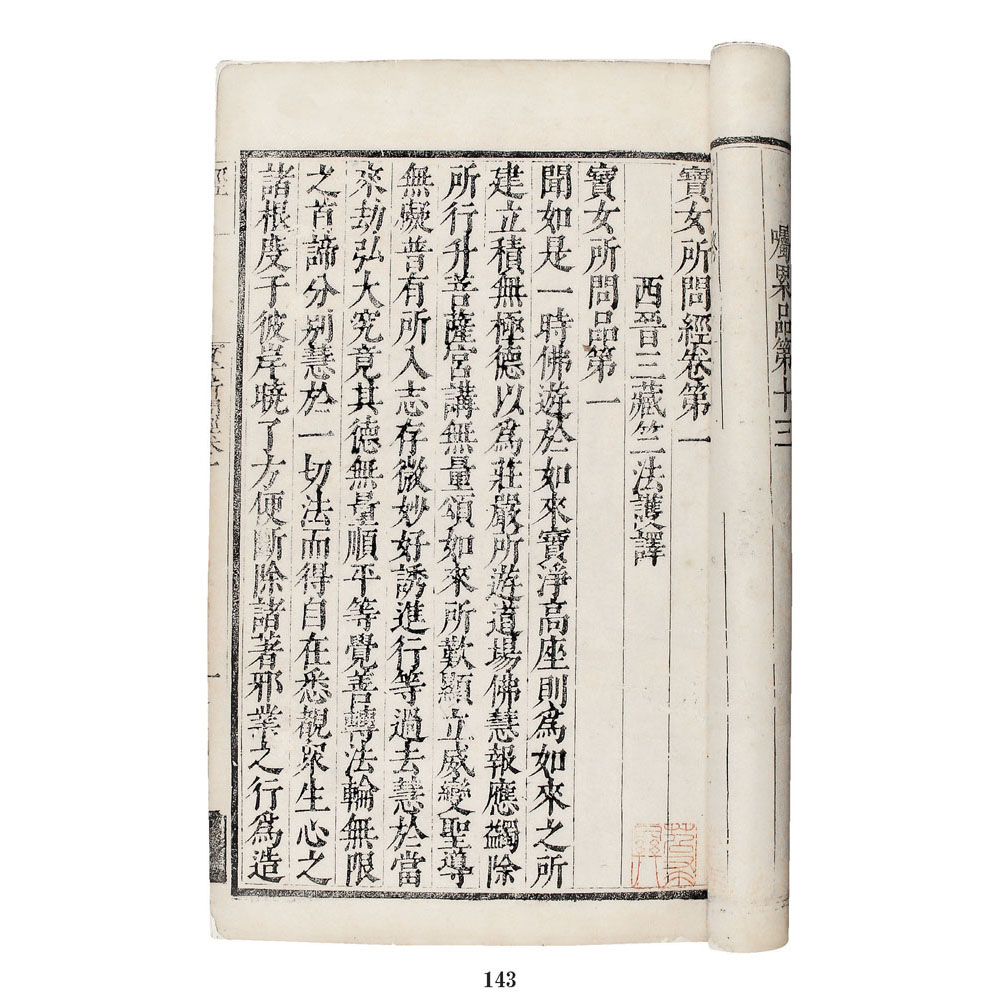 囑累品第十三
寶女所問經卷第一
西晉三藏竺法護譯
寶女所問品第一
聞如是一時佛遊於如來寶淨高座則為如來之所
建立積無極德以為莊嚴所遊道場佛慧報應蠲除
所行升菩薩宮講無量頌如來所歎顯立威變聖導
無礙普有所入志存微妙好誘進行等過去慧於當
來劫弘大究竟其德無量順平等覺善轉法輪無限
之首諦分別慧於一切法而得自在悉觀眾生心之
諸根度于彼岸曉了方便斷除諸著邪業之行為造
143